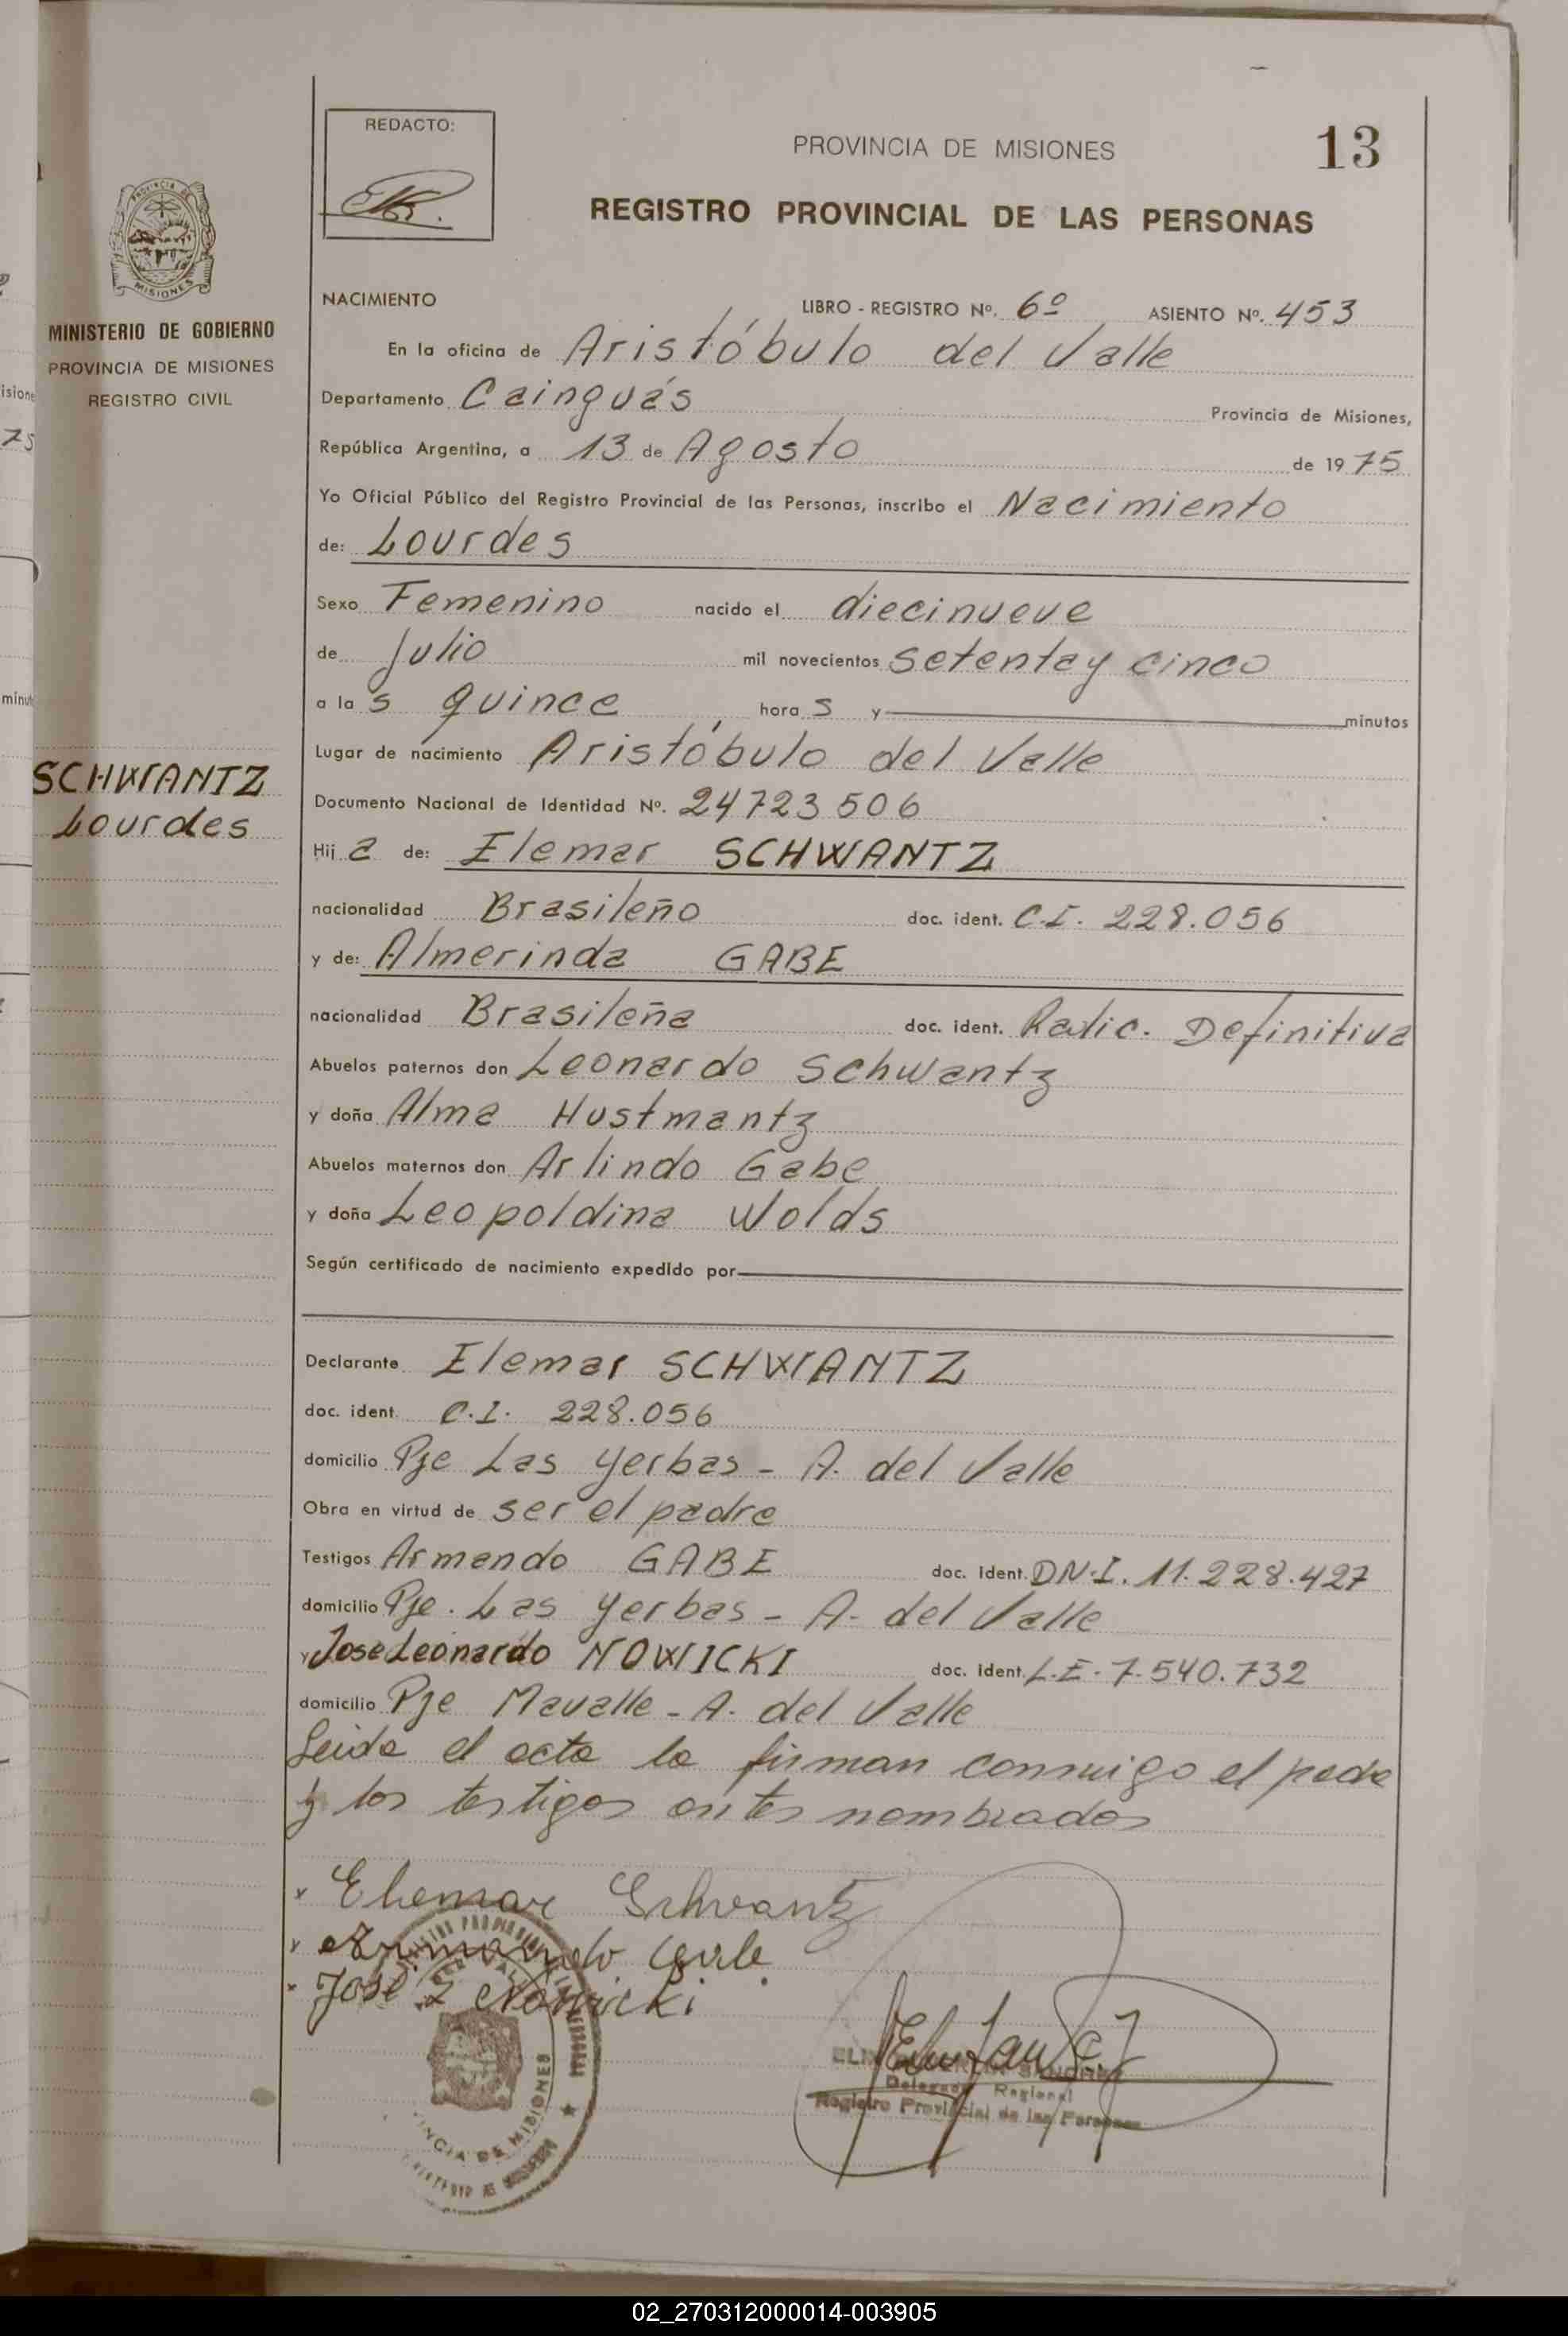 REDACTO:
PROVINCIA DE MISIONES
13
REGISTRO PROVINCIAL DE LAS PERSONAS
PROVINCIA DE
MISIONES
MINISTERIO DE GOBIERNO
PROVINCIA DE MISIONES
REGISTRO CIVIL
75
SCHWANTZ
Lourdes
NACIMIENTO LIBRO - REGISTRO Nº. 6º ASIENTO Nº. 453
En la oficina de Aristóbulo del Valle
Departamento Cainguás Provincia de Misiones,
República Argentina, a 13 de Agosto de 1975
Yo Oficial Público del Registro Provincial de las Personas, inscribo el Nacimiento
de: Lourdes
Sexo Femenino nacido el diecinueve
de Julio mil novecientos setenta y cinco
a las quince horas y minutos
Lugar de nacimiento Aristóbulo del Valle
Documento Nacional de Identidad Nº. 24723506
Hija de: Elemar SCHWANTZ
nacionalidad Brasileño doc. ident. C.I. 228.056
y de: Almerinda GABE
nacionalidad Brasileña doc. ident. Radic. Definitiva
Abuelos paternos don Leonardo Schwantz
y doña Alma Hustmantz
Abuelos maternos don Arlindo Gabe
y doña Leopoldina Wolds
Según certificado de nacimiento expedido por
Declarante Elemar SCHWANTZ
doc. ident. C.I. 228.056
domicilio Pje Las Yerbas - A. del Valle
Obra en virtud de ser el padre
Testigos Armando GABE doc. ident. DN.I. 11.228.427
domicilio Pje. Las Yerbas - A. del Valle
y Jose Leonardo NOWICKI doc. ident. L.E. 7.540.732
domicilio Pje Mavalle - A. del Valle
Leida el acta la firman conmigo el padre
y los testigos antes nombrados
x Elemar Schwantz
x Armando Gabe
x José L Nowicki
Delegado Regional
Registro Provincial de las Personas
02_270312000014-003905